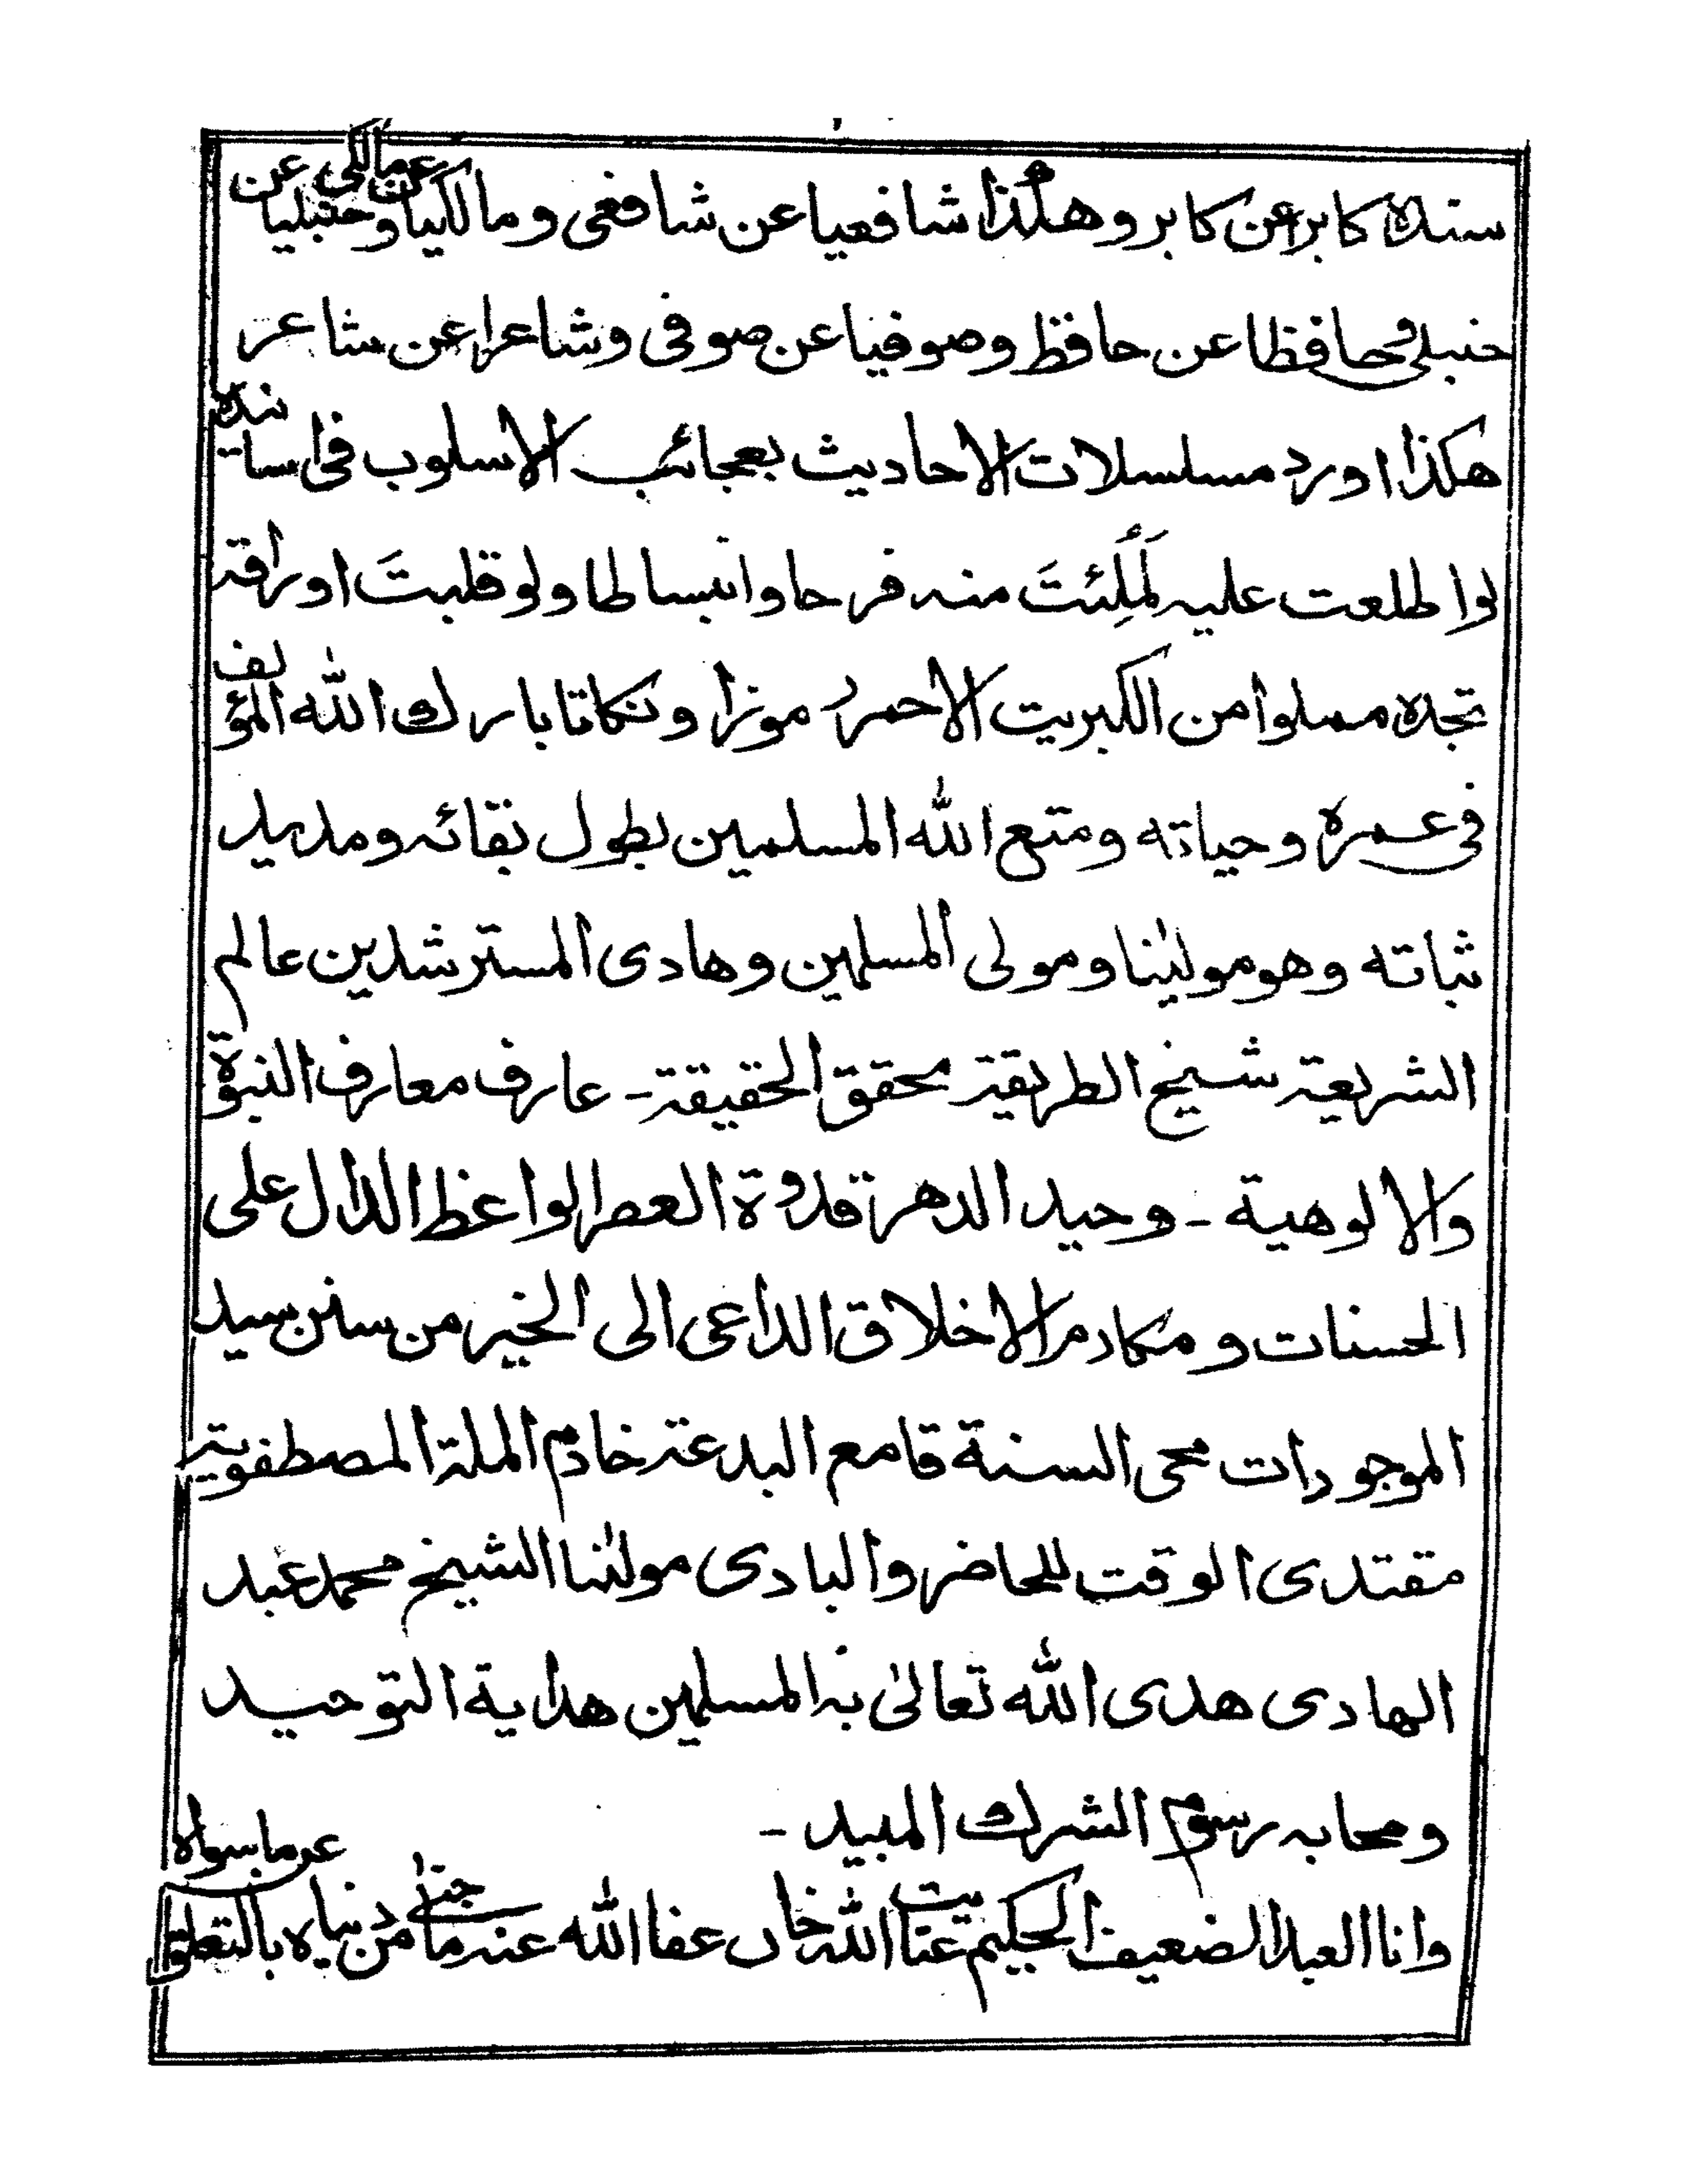 سنده كابرا عن كابر وهكذا شافعيا عن شافعى ومالكيا عن مالكى وحنبليا عن
حنبلى وحافظا عن حافظ وصوفيا عن صوفى وشاعرا عن شاعر
هكذا اورد مسلسلات الاحاديث بعجائب الاسلوب فى اسانيده
لو اطلعت عليه لَمُلِئتَ منه فرحا وانبساطا ولو قلبتَ اوراقه
تجده مملوا من الكبريت الاحمر رموزا ونكاتا بارك الله المؤلف
فى عمره وحياته ومتع الله المسلمين بطول بقائه ومديد
ثباته وهو مولٰينا ومولى المسلمين وهادى المسترشدين عالم
الشريعة شيخ الطريقة محقق الحقيقة - عارف معارف النبوة
والالوهية - وحيد الدهر قدوة العصر الواعظ الدال على
الحسنات ومكارم الاخلاق الداعى الى الخير من سنن سيد
الموجودات محى السنة قامع البدعة خادم الملة المصطفوية
مقتدى الوقت للحاضر والبادى مولٰنا الشيخ محمد عبد
الهادى هدى الله تعالىٰ به المسلمين هداية التوحيد
ومحا به رسوم الشرك المبيد -
وانا العبد الضعيف الحكيم عنايت الله خان عفا الله عنه ما جنىٰ من دنياه بالتعلق عن ما سواه